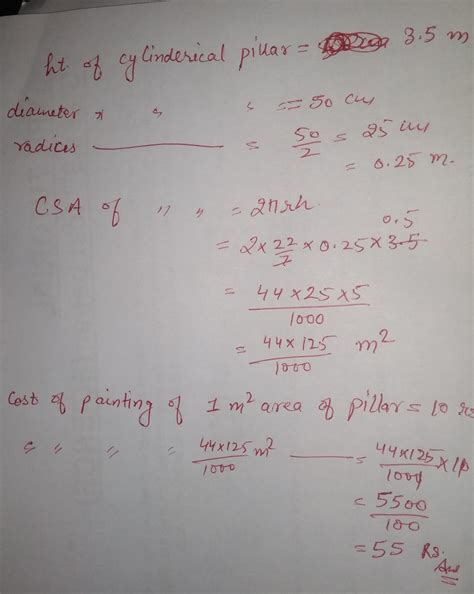 ht. of cylinderical pillar = 3.5 m
diameter " " " = 50 cm
radices ——— = 50/2 = 25 cm
= 0.25 m.
CSA of " " = 2πrh.
0.5
= 2 × 22/7 × 0.25 × 3.5
= 44×25×5/1000
= 44×125/1000 m²
Cost of painting of 1 m² area of pillar = 10 rs
" " " " 44×125/1000 m² ——— = 44×125/1000 × 10
= 5500/100
= 55 Rs.
Ans